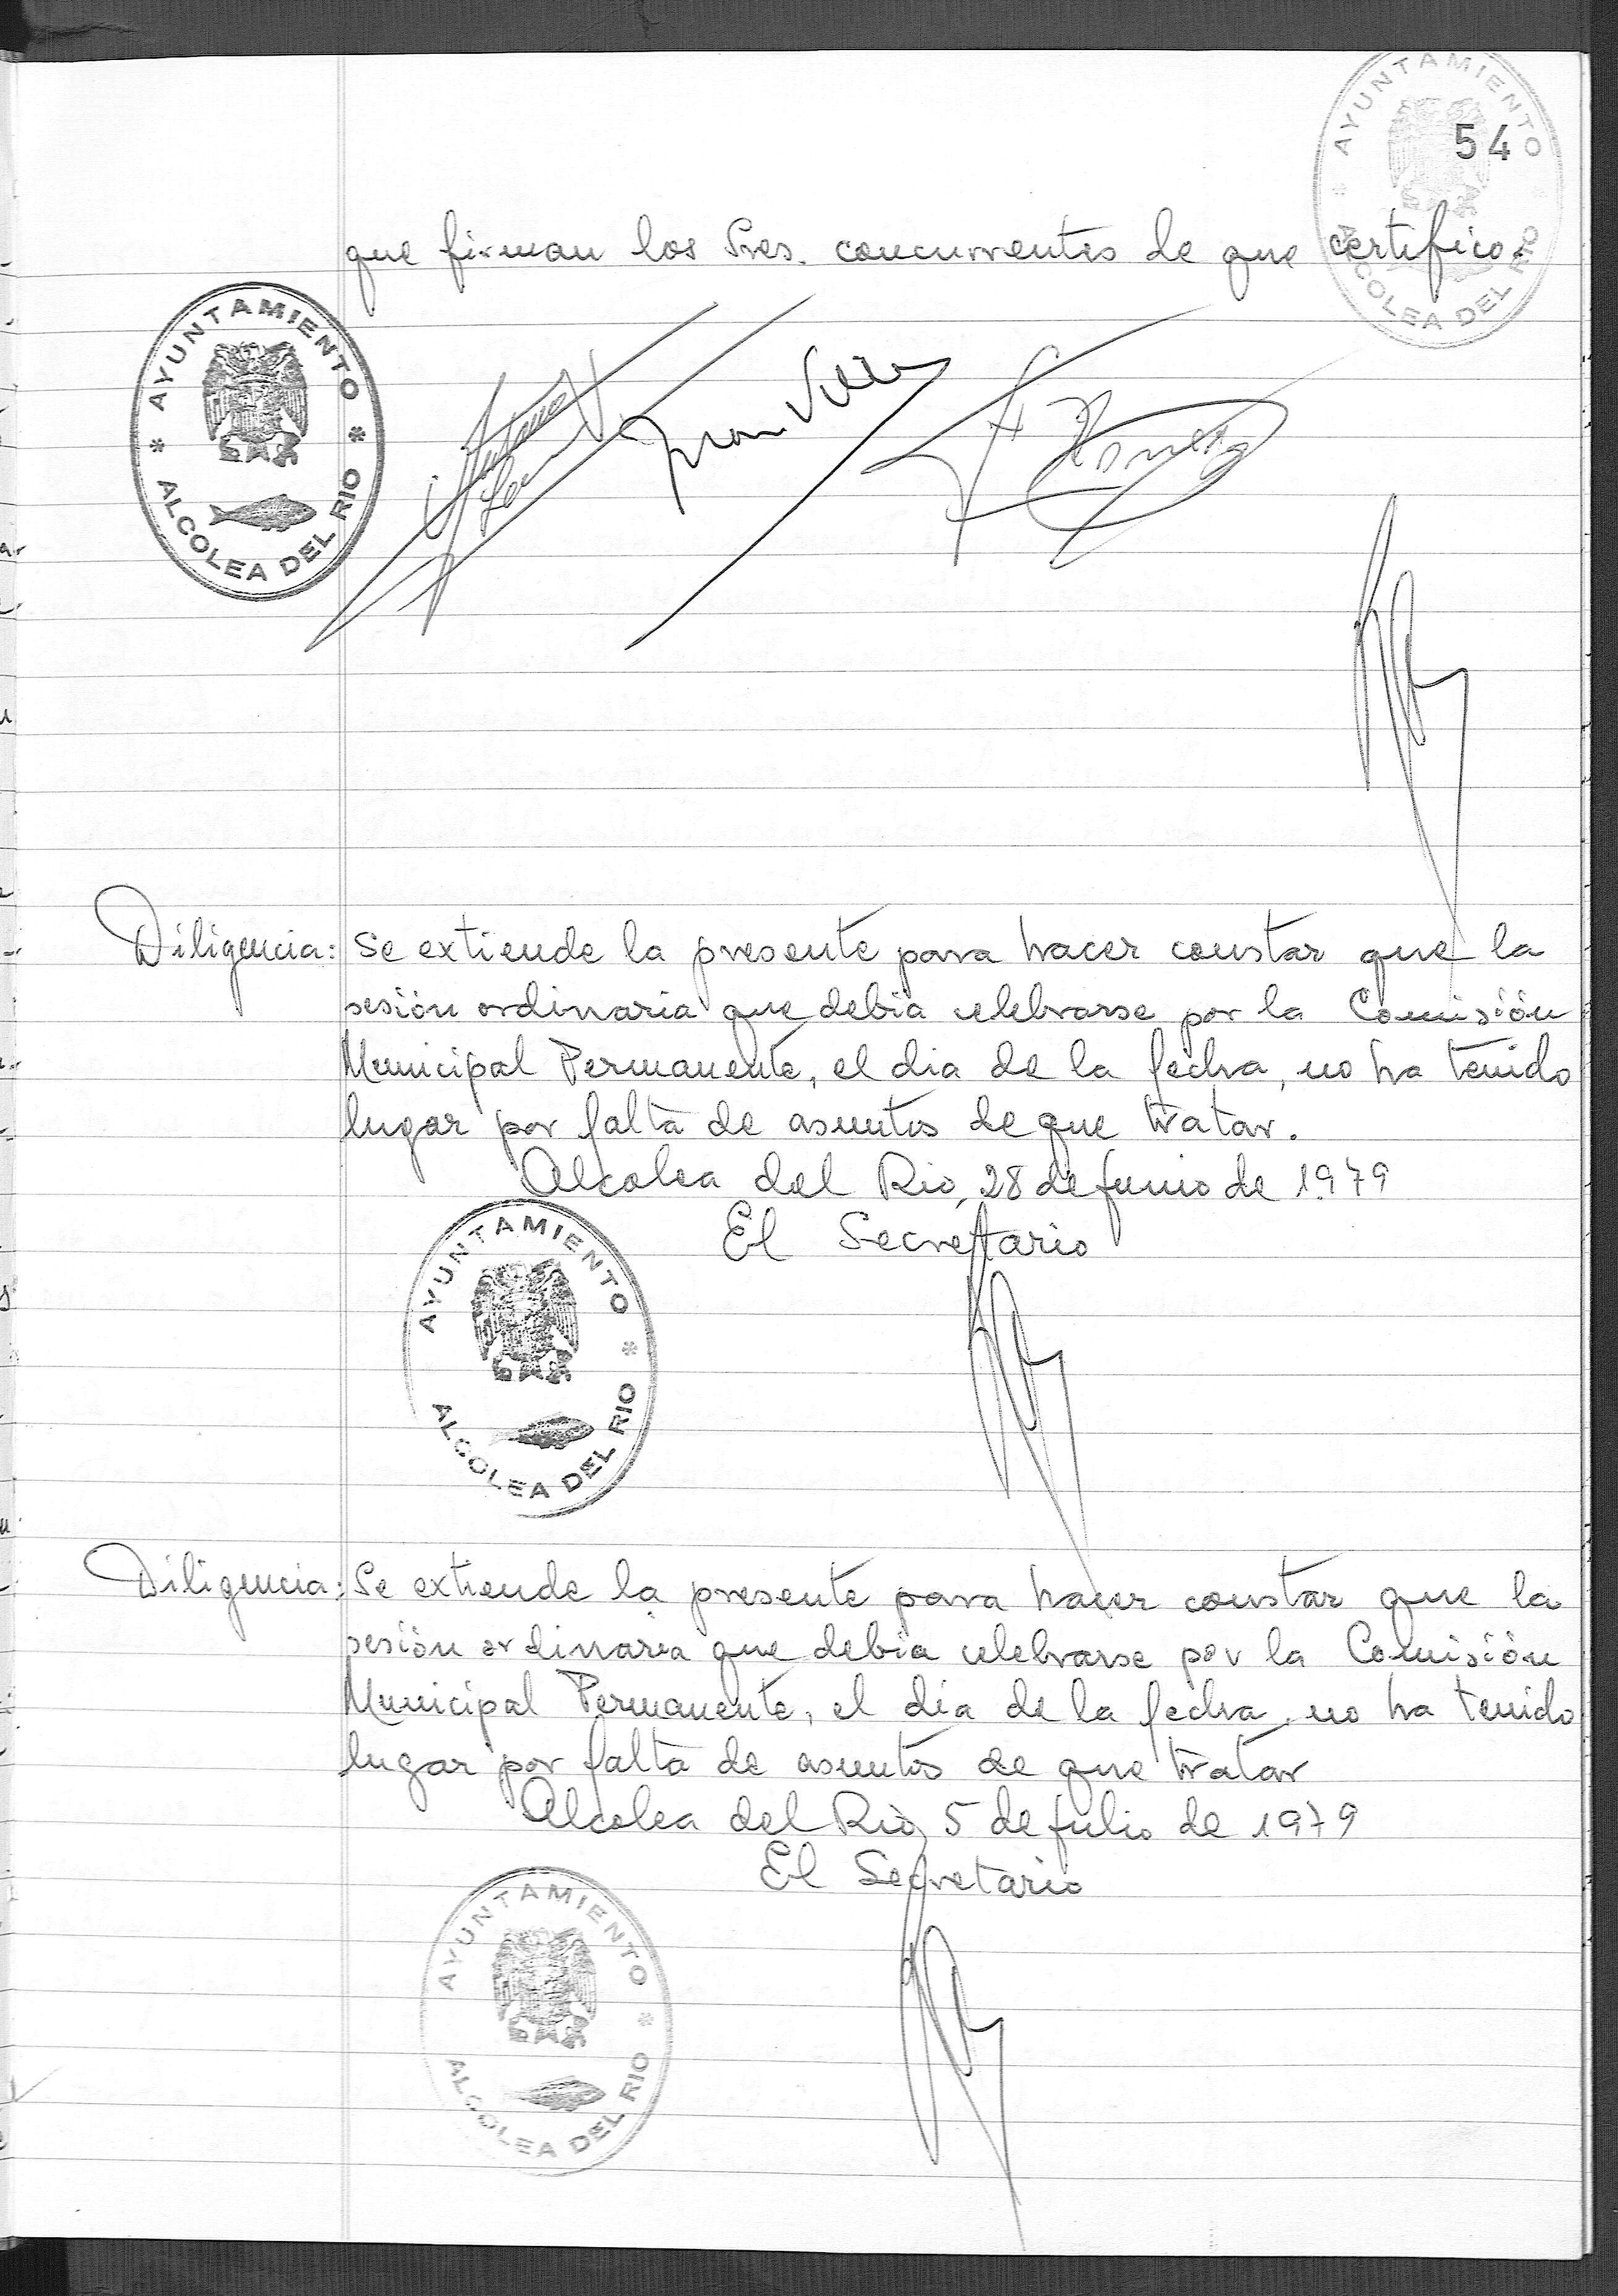 AYUNTAMIENTO
54
ALCOLEA DEL RIO
que firman los Sres. concurrentes de que certifico.
AYUNTAMIENTO
ALCOLEA DEL RIO
Juan Villa
Diligencia: Se extiende la presente para hacer constar que la
sesión ordinaria que debia celebrarse por la Comisión
Municipal Permanente, el dia de la fecha, no ha tenido
lugar por falta de asuntos de que tratar.
Alcolea del Rio, 28 de junio de 1979
El Secretario
AYUNTAMIENTO
ALCOLEA DEL RIO
Diligencia: Se extiende la presente para hacer constar que la
sesión ordinaria que debia celebrarse por la Comisión
Municipal Permanente, el dia de la fecha, no ha tenido
lugar por falta de asuntos de que tratar
Alcolea del Rio, 5 de julio de 1979
El Secretario
AYUNTAMIENTO
ALCOLEA DEL RIO